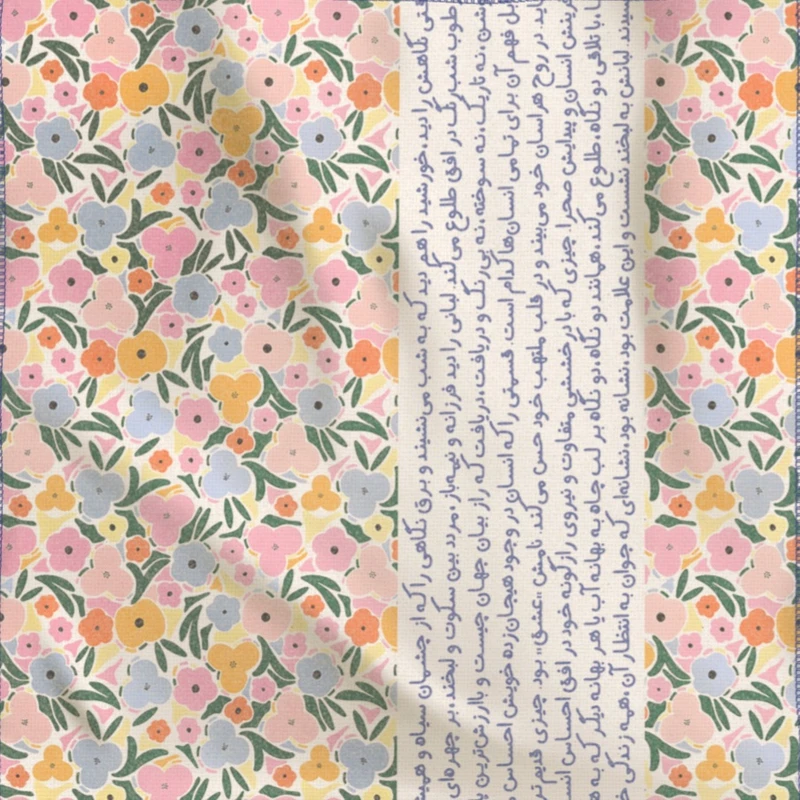 نگاهش را دید، خورشید را هم دید که به شب می‌نشیند و برق نگاهی را که از چشمان سیاه و
شب‌رنگ در افق طلوع می‌کند. لبانی را دید فرزانه و نیمه‌باز، مردد بین سکوت و لبخند، بر چهره‌ای
نه تاریک، نه سوخته، نه بی‌رنگ و دریافت، دریافت که راز بیان جهان چیست و باارزش‌ترین
فهم آن برای تمامی انسان‌ها کدام است. قسمتی را که انسان در وجود هیجان‌زده خویش احساس
در روح هر انسان خود می‌بیند و در قلب ملتهب خود حس می‌کند. نامش «عشق» بود. چیزی قدیم‌تر
انسان و پیدایش صحرا. چیزی که با درخششی متفاوت و نیروی رازگونه خود در افق احساس
با تلاقی دو نگاه، طلوع می‌کند، همانند دو نگاه، دو نگاه بر لب چاه به بهانه آب یا هر بهانه دیگر که به
لبانش به لبخند نشست و این علامت بود، نشانه بود، نشانه‌ای که جوان به انتظار آن، همه زندگی